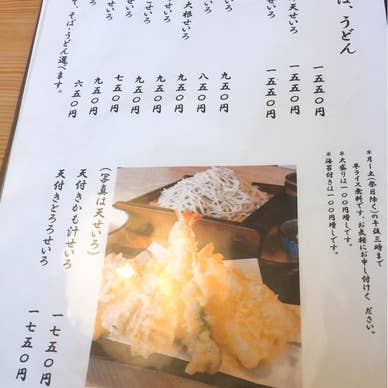 ば、うどん
天せいろ
せいろ
せいろ
一五五〇円
一五五〇円
一五五〇円
大根せいろ
せいろ
せいろ
せいろ
九五〇円
八五〇円
九五〇円
九五〇円
七五〇円
九五〇円
九五〇円
六五〇円
で、そば・うどん選べます。
＊月～土(祭日除く)の午後三時まで
半ライス無料です、お気軽にお申し付け ください。
＊大盛りは一〇〇円増しです。
＊海苔付きは一〇〇円増しです。
(写真は天せいろ)
天付きかも汁せいろ
天付きとろろせいろ
一七五〇円
一七五〇円